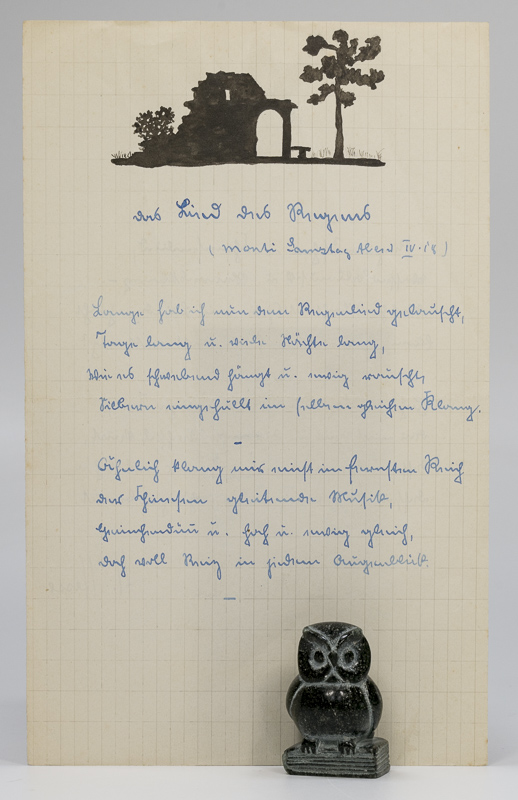 das Lied des Regens
(Monti Samstag Abend IV.18)
Lange hab ich nun dem Regenlied gelauscht,
Tage lang u. viele Nächte lang,
Wie es schwebend hängt u. ewig rauscht,
Silbern eingehüllt im selben gleichen Klang.
Ähnlich klang mir einst im fernsten Reich
der Chinesen gleitende Musik,
Heimchendünn u. hoch u. ewig gleich,
doch voll Reiz in jedem Augenblick.